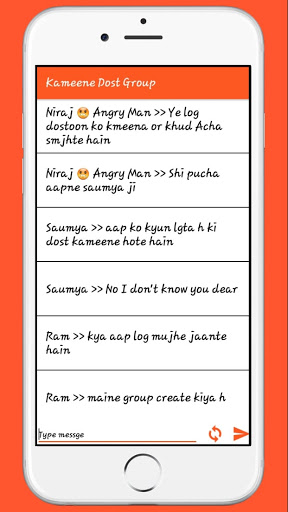 Kameene Dost Group
Niraj 😡 Angry Man >> Ye log
dostoon ko kmeena or khud Acha
smjhte hain
Niraj 😡 Angry Man >> Shi pucha
aapne saumya ji
Saumya >> aap ko kyun lgta h ki
dost kameene hote hain
Saumya >> No I don't know you dear
Ram >> kya aap log mujhe jaante
hain
Ram >> maine group create kiya h
Type messge